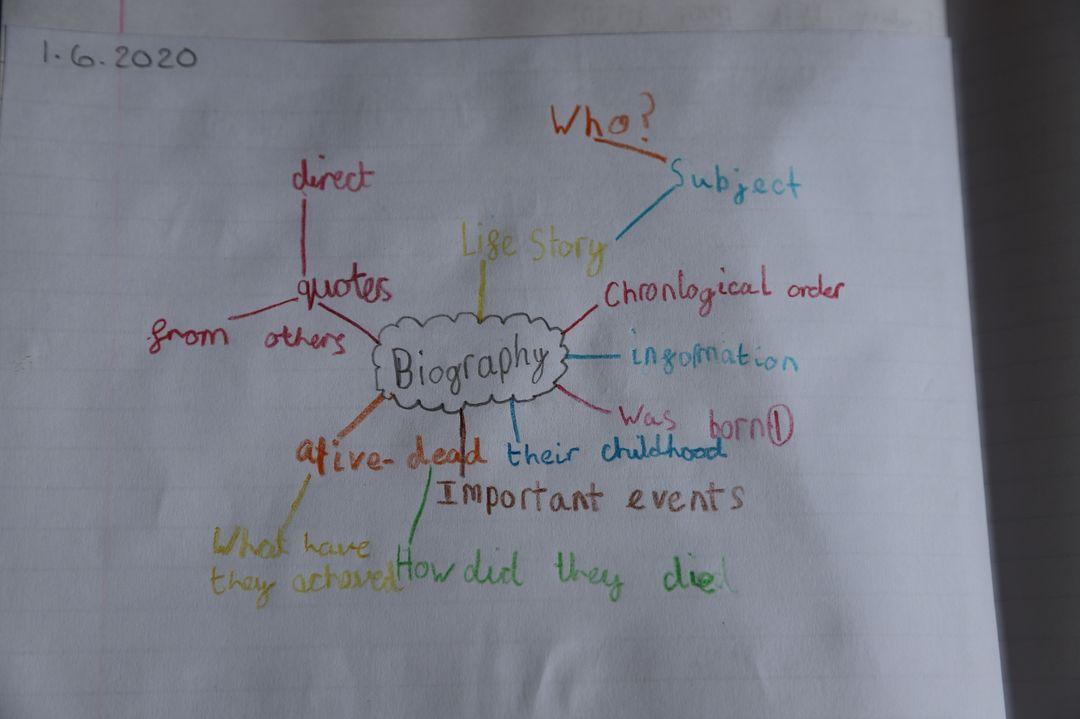 1.6.2020
Who?
direct
Subject
Life Story
quotes
Chronlogical order
from others
Biography
information
Was born①
alive-dead
their childhood
Important events
What have
they acheved
How did they die